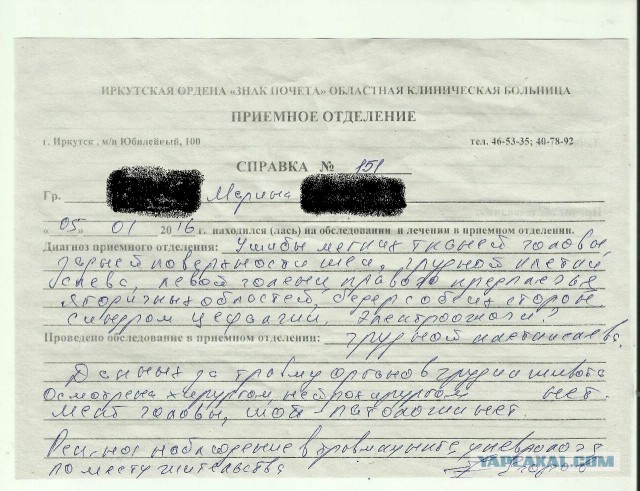 ИРКУТСКАЯ ОРДЕНА «ЗНАК ПОЧЕТА» ОБЛАСТНАЯ КЛИНИЧЕСКАЯ БОЛЬНИЦА
ПРИЕМНОЕ ОТДЕЛЕНИЕ
г. Иркутск, м/н Юбилейный, 100 тел. 46-53-35; 40-78-92
СПРАВКА № 151
Гр. Марина
«05» 01 2016 г. находился (лась) на обследовании и лечении в приемном отделении.
Диагноз приемного отделения: Ушибы мягких тканей головы,
задней поверхности шеи, грудной клетки
слева, левой голени правого предплечья
ягодичных областей, бедер с обеих сторон.
Синдром цефалгии. Электроожоги?
Проведено обследование в приемном отделении: грудной клетки слева.
Данных за травму органов груди и живота
осмотрена хирургом, нейрохирургом нет.
головы, шеи - патологии нет.
наблюдение в травмпункте, у невролога
по месту жительства
YAPLAKAL.COM